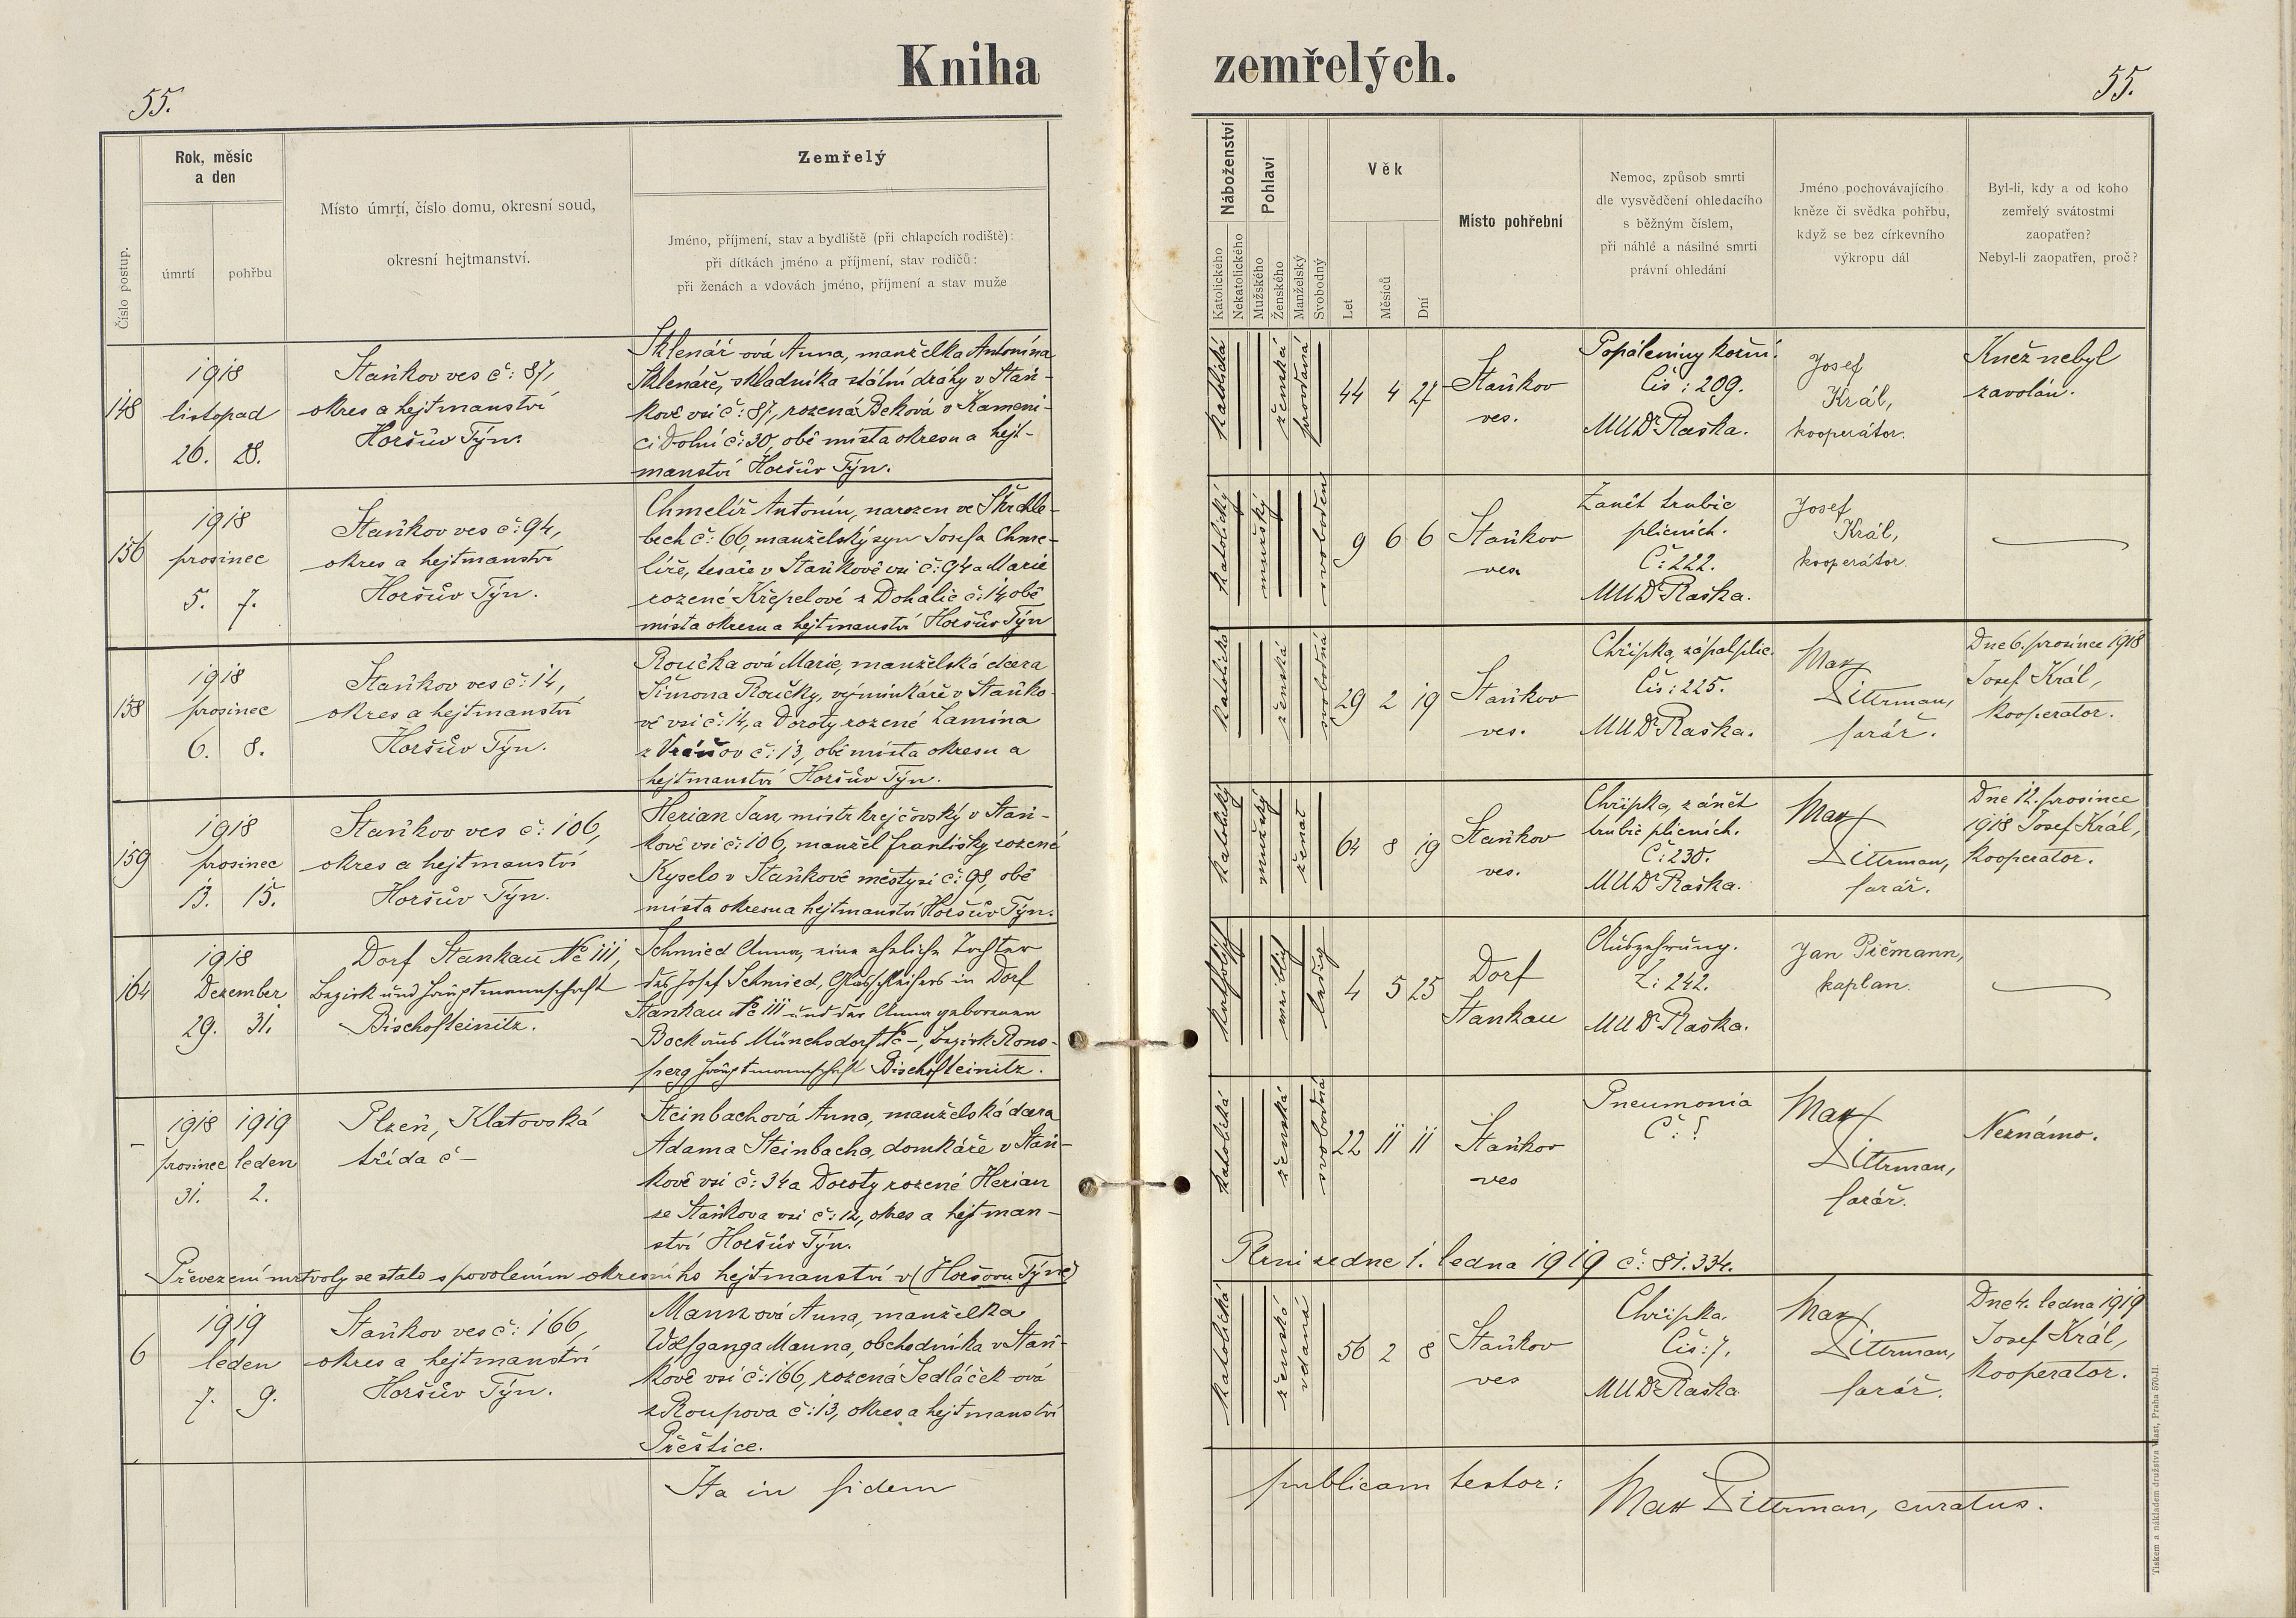 Kniha zemřelých.
55.
55.
Číslo postup.
Rok, měsíc
a den
úmrtí
pohřbu
Místo úmrtí, číslo domu, okresní soud,
okresní hejtmanství.
Zemřelý
Jméno, příjmení, stav a bydliště (při chlapcích rodiště):
při dítkách jméno a příjmení, stav rodičů:
při ženách a vdovách jméno, příjmení a stav muže
Náboženství
Katolického
Nekatolického
Pohlaví
Mužského
Ženského
Manželský
Svobodný
Věk
Let
Měsíců
Dní
Místo pohřební
Nemoc, způsob smrti
dle vysvědčení ohledacího
s běžným číslem,
při náhlé a násilné smrti
právní ohledání
Jméno pochovávajícího
kněze či svědka pohřbu,
když se bez církevního
výkropu dál
Byl-li, kdy a od koho
zemřelý svátostmi
zaopatřen?
Nebyl-li zaopatřen, proč?
148
1918
listopad
26. 28.
Staňkov ves č: 87,
okres a hejtmanství
Horšův Týn.
Sklenář ová Anna, manželka Antonína
Sklenáře, skladníka státní dráhy v Staň-
kově vsi č: 87, rozená Beková v Kameni-
ci Dolní č: 30, obě místa okresu a hejt-
manství Horšův Týn.
katolická
ženská
provdaná
44 4 27
Staňkov
ves.
Popáleniny kožní.
Čís: 209.
MUDr Raška.
Josef
Král,
kooperátor.
Kněz nebyl
zavolán.
156
1918
prosinec
5. 7.
Staňkov ves č: 94,
okres a hejtmanství
Horšův Týn.
Chmelíř Antonín, narozen ve Škrchle-
bech č: 66, manželský syn Josefa Chme-
líře, tesaře v Staňkově vsi č: 94 a Marie
rozené Křepelové z Dohalic č: 14, obě
místa okresu a hejtmanství Horšův Týn
katolický
mužský
svoboden
9 6 6
Staňkov
ves
Zanět trubic
plicních.
Č: 222.
MUDr Raška.
Josef
Král,
kooperátor.
158
1918
prosinec
6. 8.
Staňkov ves č: 14,
okres a hejtmanství
Horšův Týn.
Roučka ová Marie, manželská dcera
Šimona Roučky, výminkáře v Staňko-
vě vsi č: 14, a Doroty rozené Lamina
z č: 13, obě místa okresu a
hejtmanství Horšův Týn.
ženská
svobodná
29 2 19
Staňkov
ves.
Chřipka, zápal plic.
Čís: 225.
MUDr Raška.
Max
Dittrman,
farář.
Dne 6. prosince 1918
Josef Král,
kooperator.
159
1918
prosinec
13. 15.
Staňkov ves č: 106,
okres a hejtmanství
Horšův Týn.
Herian Jan, mistr krejčovský v Staň-
kově vsi č: 106, manžel Františky rozené
Kyselo v Staňkově městysi č: 98, obě
místa okresu a hejtmanství Horšův Týn.
katolický
mužský
ženat
64 8 19
Staňkov
ves.
Chřipka, zánět
trubic plicních.
Č: 230.
MUDr Raška.
Max
Dittrman,
farář.
Dne 12. prosince
1918 Josef Král,
kooperator.
164
1918
Dezember
29. 31.
Dorf Stankau № 111,
Bezirk und Hauptmannschaft
Bischofteinitz.
Schmied Anna, eine eheliche Tochter
des Josef Schmied, Glasschleifers in Dorf
Stankau № 111 und der Anna geborenen
Bock aus Münchsdorf № -, Bezirk Rons-
perg Hauptmannschaft Bischofteinitz.
katholisch
weiblich
ledig
4 5 25
Dorf
Stankau
Auszehrung.
Z: 242.
MUDr Raška.
Jan Pičmann,
kaplan.
-
1918 1919
prosinec leden
31. 2.
Plzeň, Klatovská
třída č -
Steinbachová Anna, manželská dcera
Adama Steinbacha, domkáře v Staň-
kově vsi č: 34 a Doroty rozené Herian
ze Staňkova vsi č: 12, okres a hejtman-
ství Horšův Týn.
katolická
ženská
svobodná
22 11 11
Staňkov
ves
Pneumonia
Č: ?
Max
Dittrman,
farář.
Neznámo.
Převezení mrtvoly se stalo s povolením okresního hejtmanství v (Horšovu Týně)
Plzni ze dne 1. ledna 1919 č: 81.334.
6
1919
leden
7. 9.
Staňkov ves č: 166,
okres a hejtmanství
Horšův Týn.
Mann ová Anna, manželka
Wolfganga Manna, obchodníka v Staň-
kově vsi č: 166, rozená Sedláček ová
z Roupova č: 13, okres a hejtmanství
Přeštice.
katolická
ženská
vdaná
56 2 8
Staňkov
ves
Chřipka.
Čís: 7.
MUDr Raška
Max
Dittrman,
farář.
Dne 4. ledna 1919
Josef Král,
kooperator.
Ita in fidem publicam testor: Max Dittrman, curatus.
Tiskem a nákladem družstva Vlast, Praha 570-II.